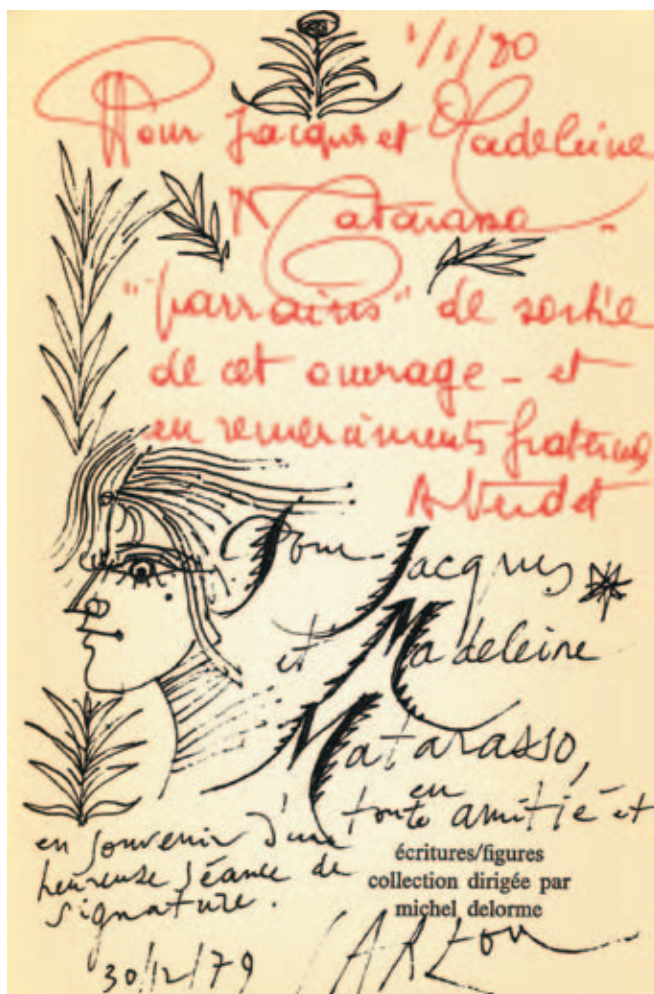 1/1/80
Pour Jacques et Madeleine
Matarasso -
"parrains" de sortie
de cet ouvrage - et
en remerciements fraternels
A Verdet
Pour Jacques
et Madeleine
Matarasso,
en toute amitié et
en souvenir d'une
heureuse séance de
signature.
écritures/figures
collection dirigée par
michel delorme
30/12/79
CARZOU